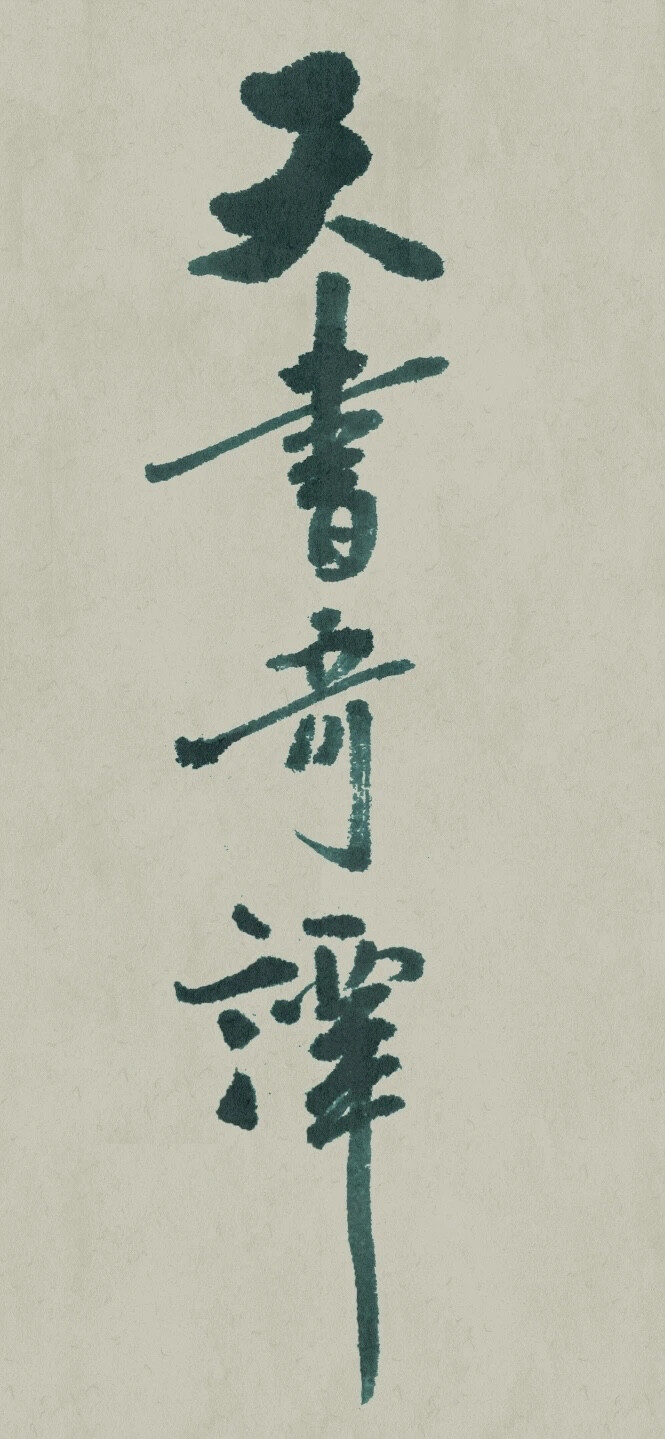 天書奇譚